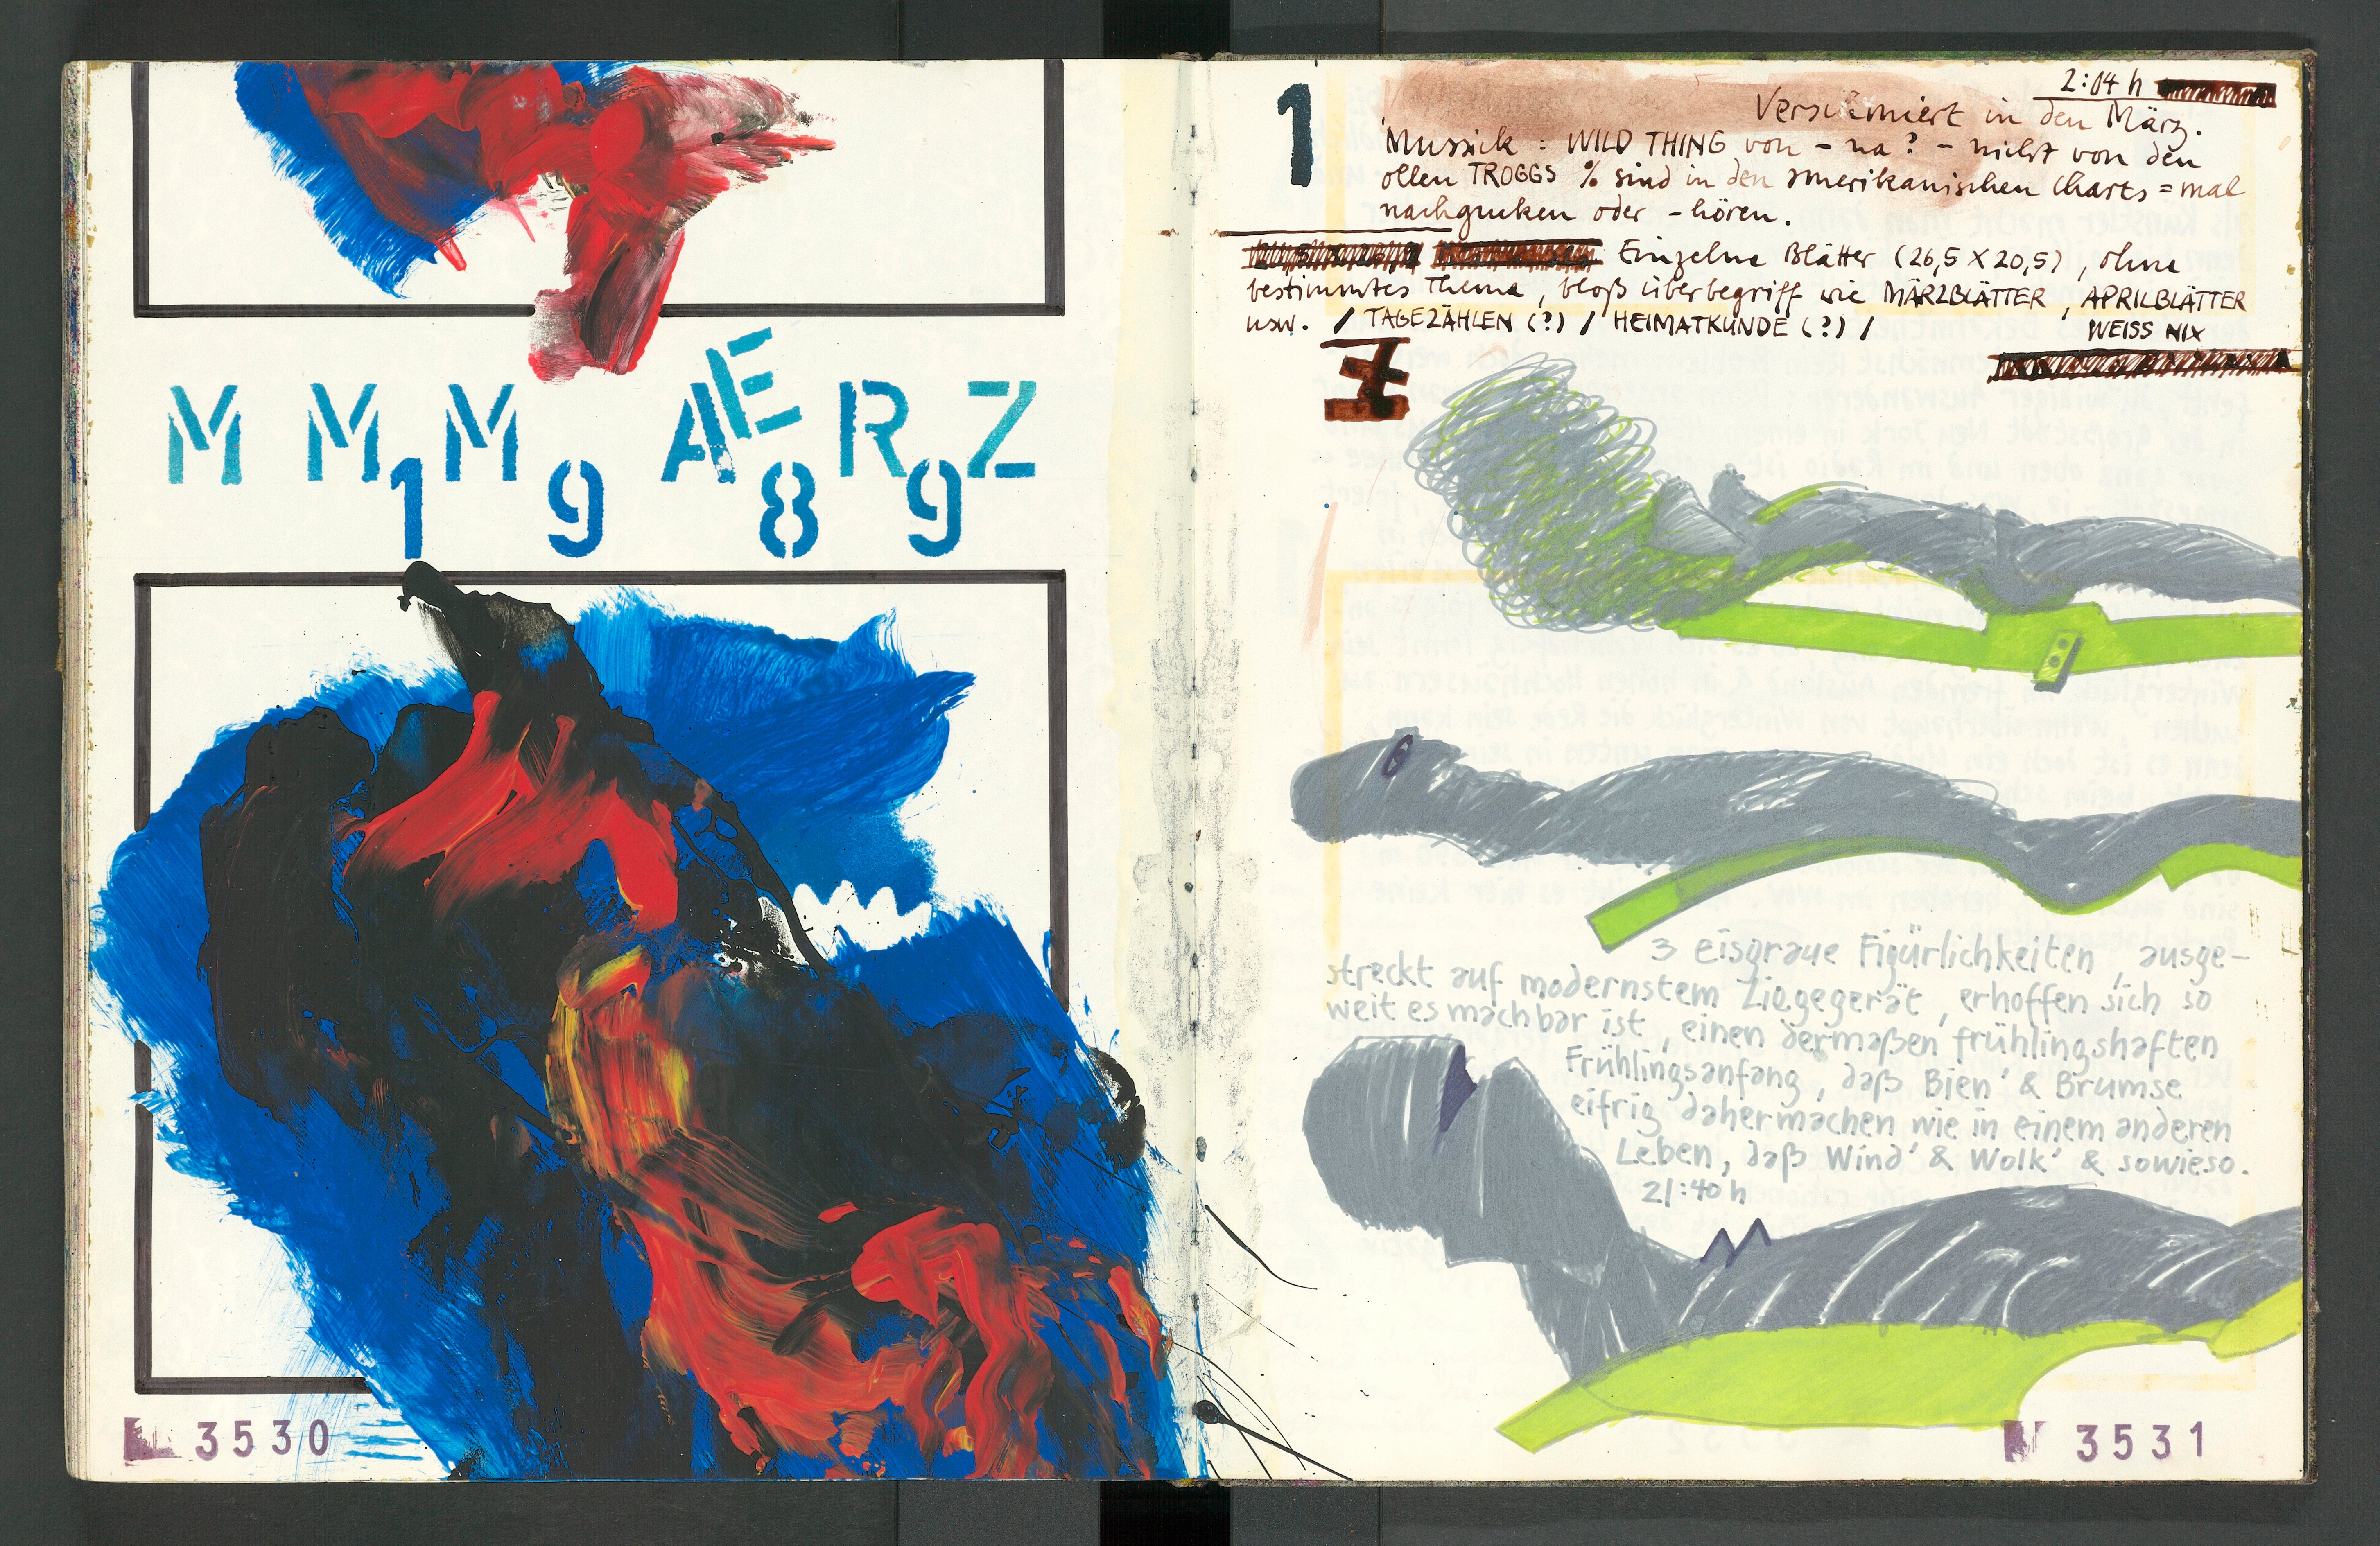 M M M AERZ
1 9 8 9
3530
1
2:04 h
Versumiert in den März.
Mussick : WILD THING von – na ? – nicht von den
ollen TROGGS % sind in den amerikanischen Charts = mal
nachgucken oder – hören.
Einzelne Blätter (26,5 X 20,5) , ohne
bestimmtes Thema , bloß überbegriff wie MÄRZBLÄTTER , APRILBLÄTTER
usw. / TAGEZÄHLEN (?) / HEIMATKUNDE (?) /
WEISS NIX
3 eisgraue Figürlichkeiten , ausge–
streckt auf modernstem Liegegerät , erhoffen sich so
weit es machbar ist , einen dermaßen frühlingshaften
Frühlingsanfang , daß Bien' & Brumse
eifrig dahermachen wie in einem anderen
Leben , daß Wind' & Wolk' & sowieso.
21:40 h
3531